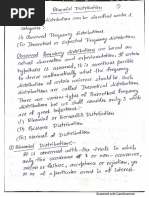 Binomial Distribution
distributions can be classified under 2
categories :-
(i) Observed Frequency distributions
(ii) Theoretical or Expected Frequency distributions
Observed frequency distributions are based on
actual observation and experimentation. If certain
hypothesis is assumed, it is sometimes possible
to derive mathematically what the frequency
distribution of certain universe should be. Such
distributions are called Theoretical distributions.
There are various types of Theoretical frequency
distributions but we shall
(i) Binomial or Bernoulli's Distribution
(ii) Poisson Distribution
(iii) Normal Distribution
(1) Binomial Distribution :-
It is concerned with trials in which
only the occurrence or non-occurrence,
success or failure, acceptance or rejection, yes
or no of a particular event is of interest.
Scanned with CamScanner